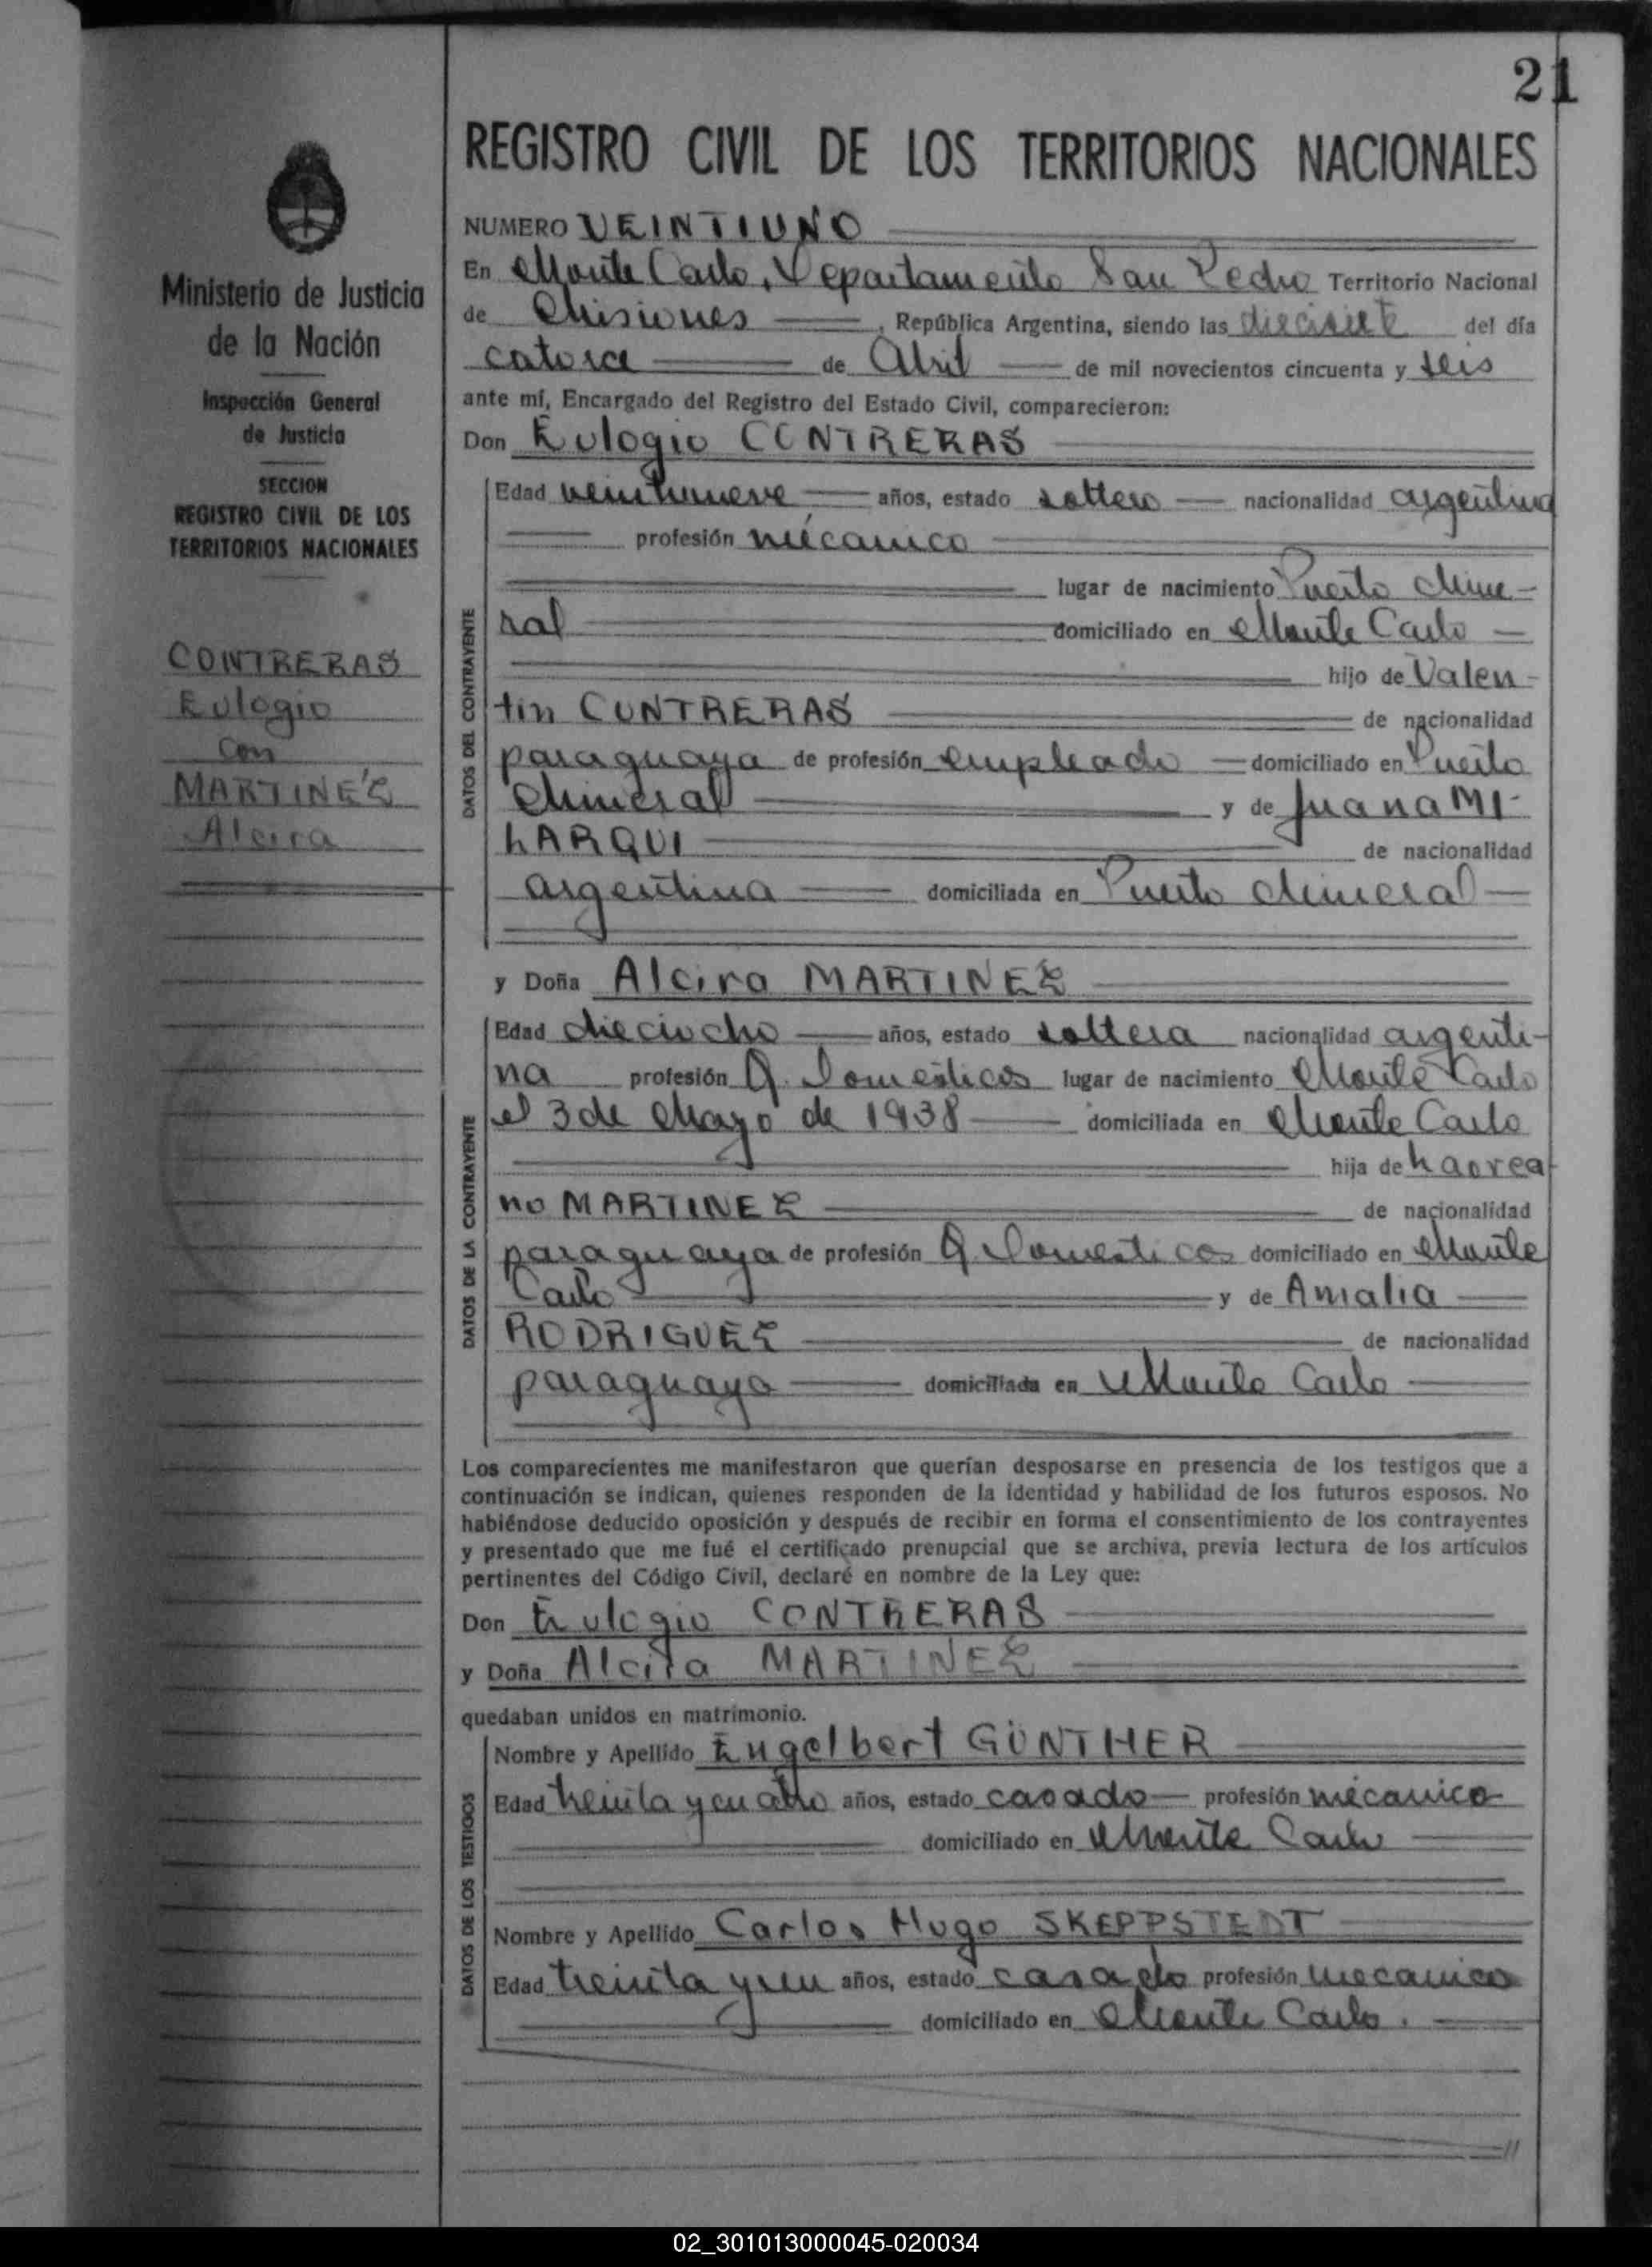 21
REGISTRO CIVIL DE LOS TERRITORIOS NACIONALES
Ministerio de Justicia
de la Nación
Inspección General
de Justicia
SECCION
REGISTRO CIVIL DE LOS
TERRITORIOS NACIONALES
CONTRERAS
Eulogio
con
MARTINEZ
Alcira
NUMERO VEINTIUNO
En Monte Carlo, Departamento San Pedro Territorio Nacional
de Misiones, República Argentina, siendo las diecisiete del día
catorce de Abril de mil novecientos cincuenta y seis
ante mí, Encargado del Registro del Estado Civil, comparecieron:
Don Eulogio CONTRERAS
DATOS DEL CONTRAYENTE
Edad veintinueve años, estado soltero nacionalidad argentina
profesión mécanico
lugar de nacimiento Puerto Mine-
ral domiciliado en Monte Carlo
hijo de Valen-
tin CONTRERAS de nacionalidad
paraguaya de profesión empleado domiciliado en Puerto
Mineral y de Juana MI-
LARQUI de nacionalidad
argentina domiciliada en Puerto Mineral
y Doña Alcira MARTINEZ
DATOS DE LA CONTRAYENTE
Edad dieciocho años, estado soltera nacionalidad argenti-
na profesión Q. Domesticos lugar de nacimiento Monte Carlo
el 3 de Mayo de 1938 domiciliada en Monte Carlo
hija de
no MARTINEZ de nacionalidad
paraguaya de profesión Q. Domesticos domiciliado en Monte
Carlo y de Amalia
RODRIGUEZ de nacionalidad
paraguaya domiciliada en Monte Carlo
Los comparecientes me manifestaron que querían desposarse en presencia de los testigos que a
continuación se indican, quienes responden de la identidad y habilidad de los futuros esposos. No
habiéndose deducido oposición y después de recibir en forma el consentimiento de los contrayentes
y presentado que me fué el certificado prenupcial que se archiva, previa lectura de los artículos
pertinentes del Código Civil, declaré en nombre de la Ley que:
Don Eulogio CONTRERAS
y Doña Alcira MARTINEZ
quedaban unidos en matrimonio.
DATOS DE LOS TESTIGOS
Nombre y Apellido Engelbert GÜNTHER
Edad treinta y cuatro años, estado casado profesión mécanico
domiciliado en Monte Carlo
Nombre y Apellido Carlos Hugo SKEPPSTEDT
Edad treinta y un años, estado casado profesión mecanico
domiciliado en Monte Carlo.
02_301013000045-020034